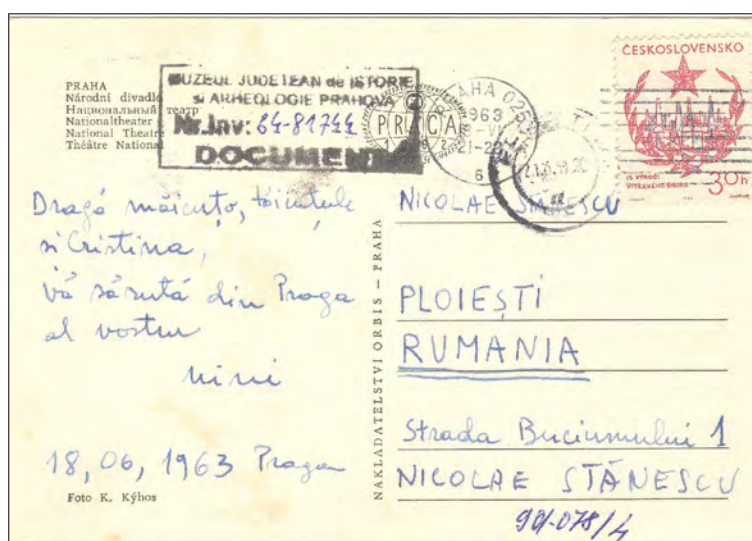 PRAHA
Národní divadlo
Национальный театр
Nationaltheater
National Theatre
Théâtre National
MUZEUL JUDEȚEAN de ISTORIE
și ARHEOLOGIE PRAHOVA
Nr.Inv: 64-81744
DOCUMENT
PRAHA 025
1963
ČESKOSLOVENSKO
15 VÝROČÍ
VÍTĚZNÉHO ÚNORA
30h
Dragă măicuțo, tăicuțule
și Cristina,
vă sărută din Praga
al vostru
nini
18, 06, 1963 Praga
Foto K. Kýhos
NAKLADATELSTVÍ ORBIS – PRAHA
NICOLAE STĂNESCU
PLOIEȘTI
RUMANIA
Strada Buciumului 1
NICOLAE STĂNESCU
90-078/4